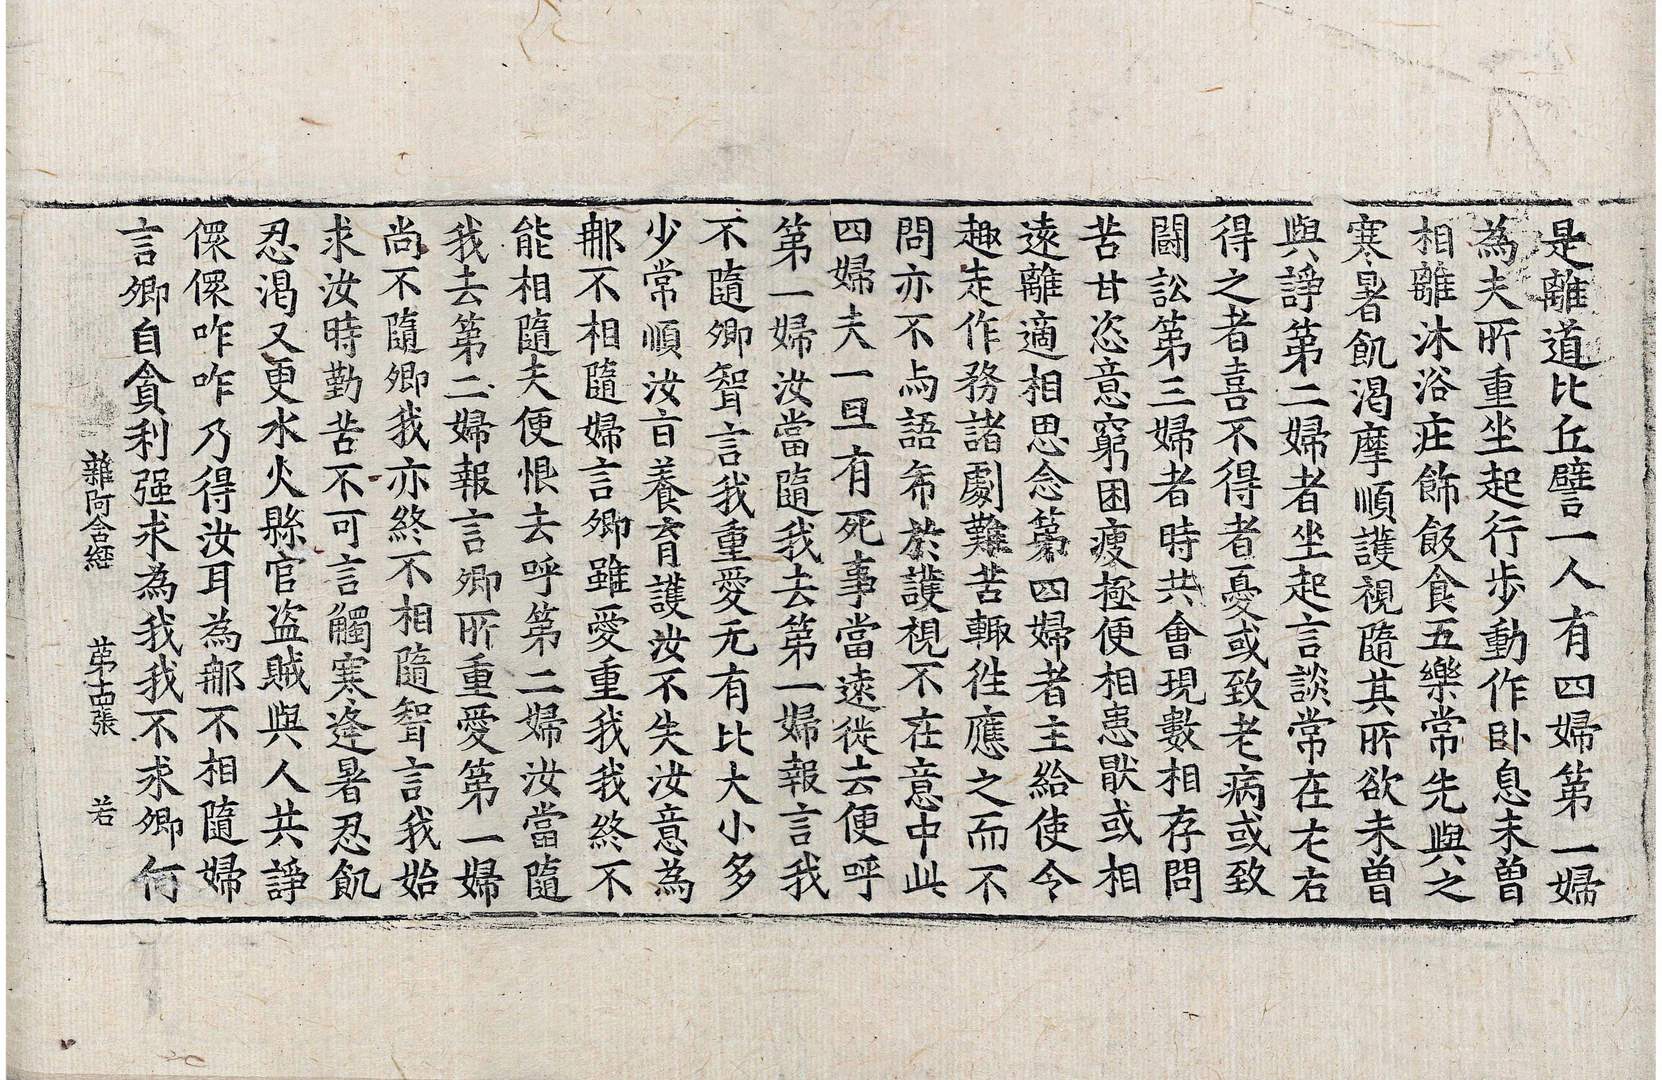 是離道比丘譬一人有四婦第一婦
為夫所重坐起行步動作卧息未曾
相離沐浴莊飾飯食五樂常先與之
寒暑飢渴摩順護視隨其所欲未曾
與諍第二婦者坐起言談常在左右
得之者喜不得者憂或致老病或致
鬪訟第三婦者時共會現數相存問
苦甘恣意窮困瘦極便相患猒或相
遠離適相思念第四婦者主給使令
趣走作務諸劇難苦輙往應之而不
問亦不与語希於護視不在意中此
四婦夫一旦有死事當遠徙去便呼
第一婦汝當隨我去第一婦報言我
不隨卿聟言我重愛无有比大小多
少常順汝㫖養育護汝不失汝意為
那不相隨婦言卿雖愛重我我終不
能相隨夫便恨去呼第二婦汝當隨
我去第二婦報言卿所重愛第一婦
尚不隨卿我亦終不相隨聟言我始
求汝時勤苦不可言觸寒逢暑忍飢
忍渴又更水火縣官盜賊與人共諍
儽儽咋咋乃得汝耳為那不相隨婦
言卿自貪利强求為我我不求卿何
雜阿含經 苐十四張 若